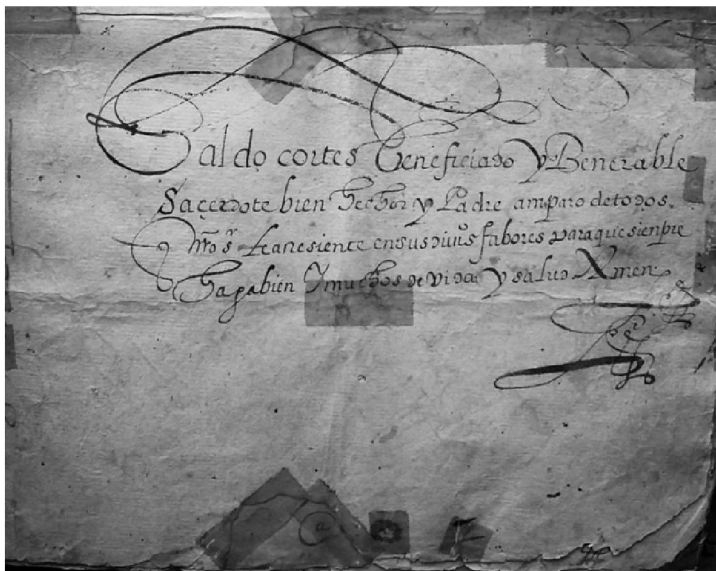 Galdo cortes Beneficiado y Benerable
Saçerdote bien hechor y Padre amparo de todos.
Nro sr
fabores para que sienpre
haga bien y muchos de vida y salud Amen